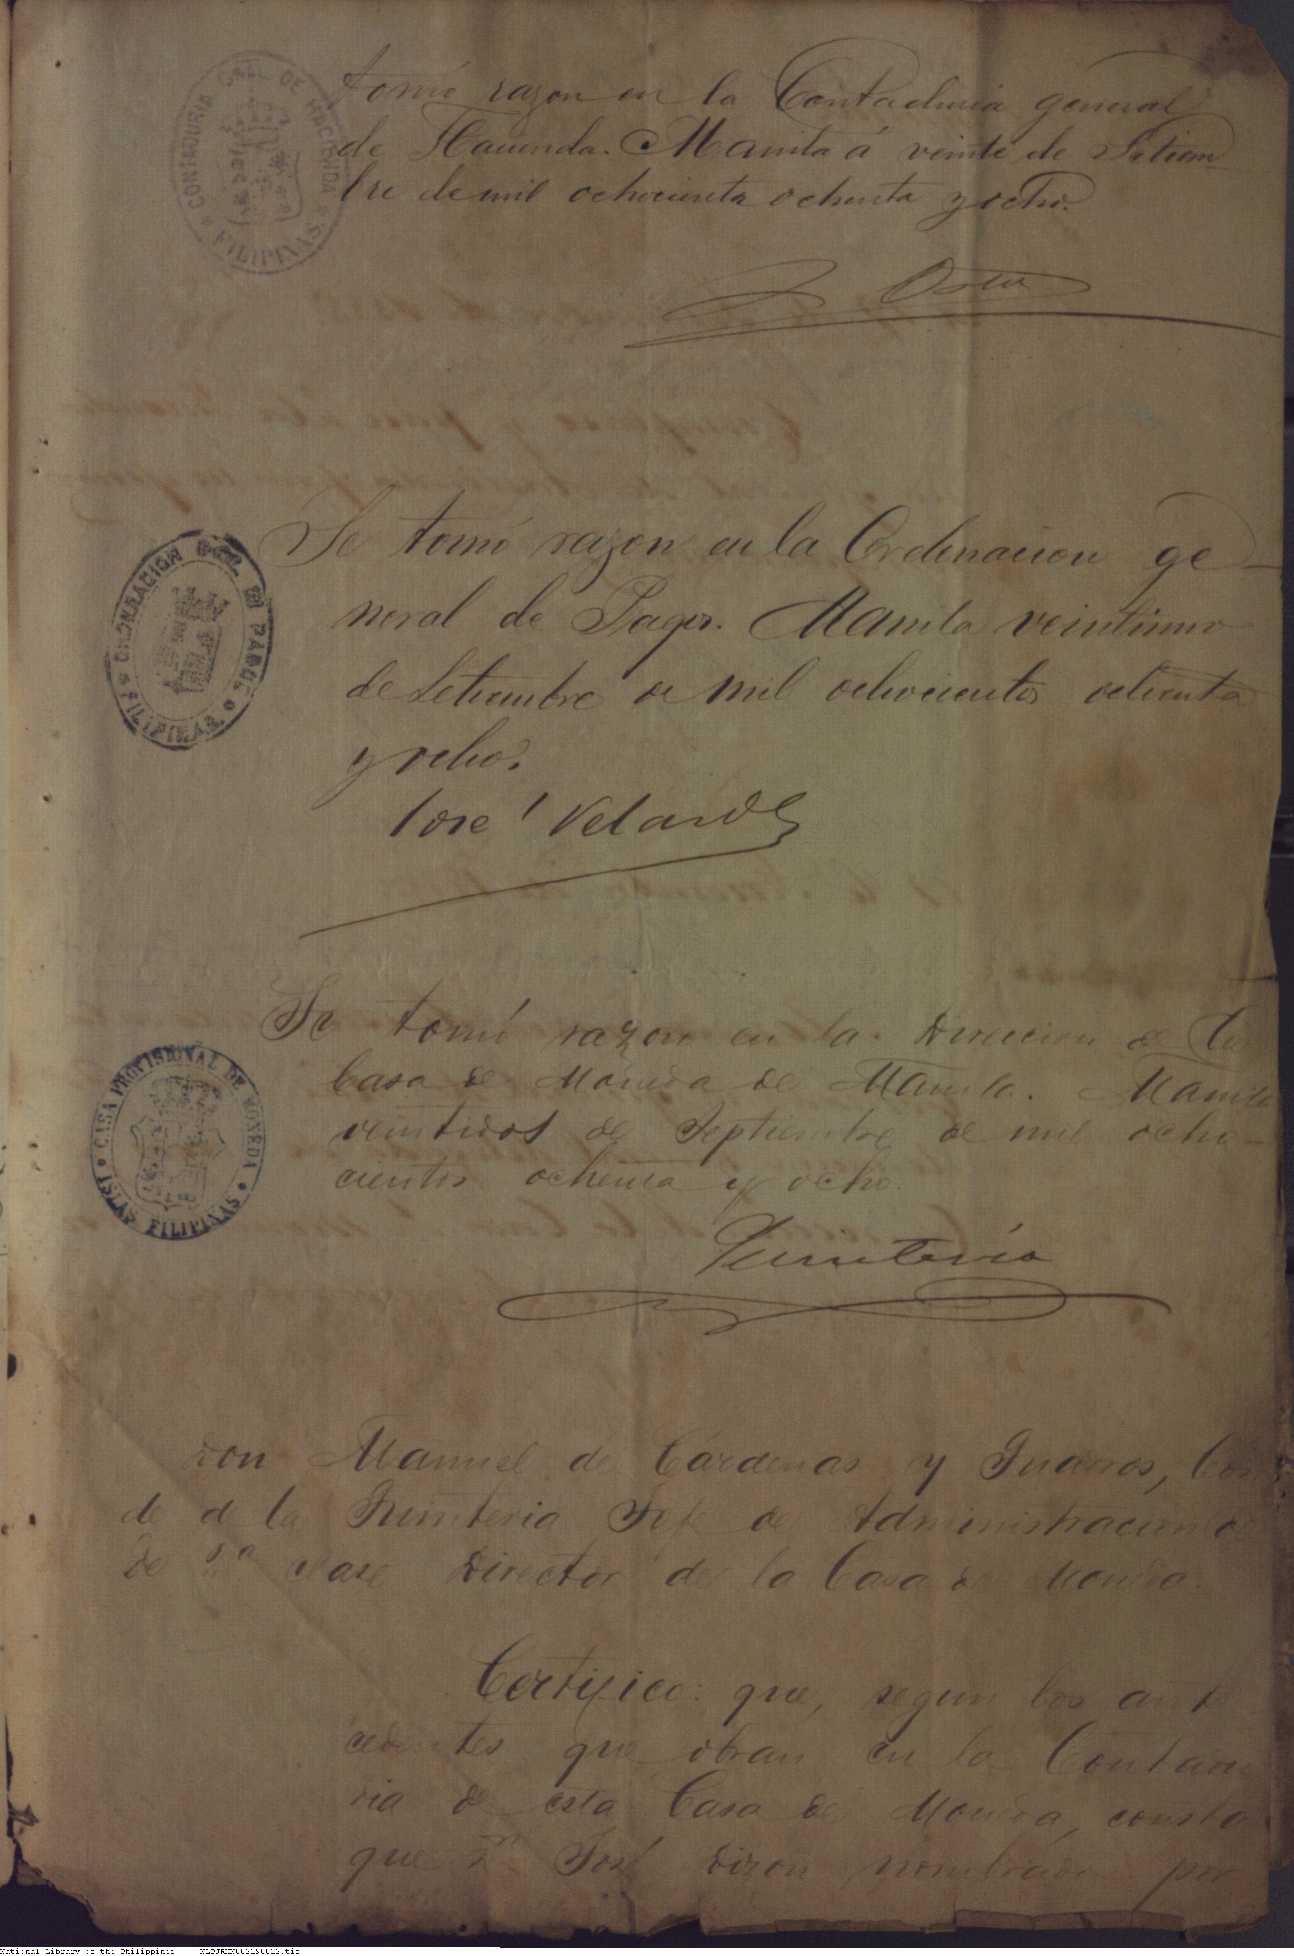 CONTADURIA GRAL DE HACIENDA
FILIPINAS
tomó razon en la Contaduria general
de Hacienda. Manila á veinte de Setiem-
bre de mil ochocientos ochenta y ocho.
ORDENACION GRAL DE PAGOS
FILIPINAS
Se tomó razon en la Ordenacion ge-
neral de Pagos. Manila veintiuno
de Setiembre de mil ochocientos ochenta
y ocho.
José Velarde
CASA PROVISIONAL DE MONEDA
ISLAS FILIPINAS
Se tomó razon en la Direccion de la
Casa de Moneda de Manila. Manila
veintidos de Septiembre de mil ocho-
cientos ochenta y ocho.
Quinteria
Don Manuel de Cárdenas y
de de la Quinteria Jefe de Administracion
de clase Director de la Casa de Moneda.
Certifico: que, segun los ante
cedentes que obran en la Contadu
ria de esta Casa de Moneda, consta
que Dn José Dizon nombrado por
National Library of the Philippines